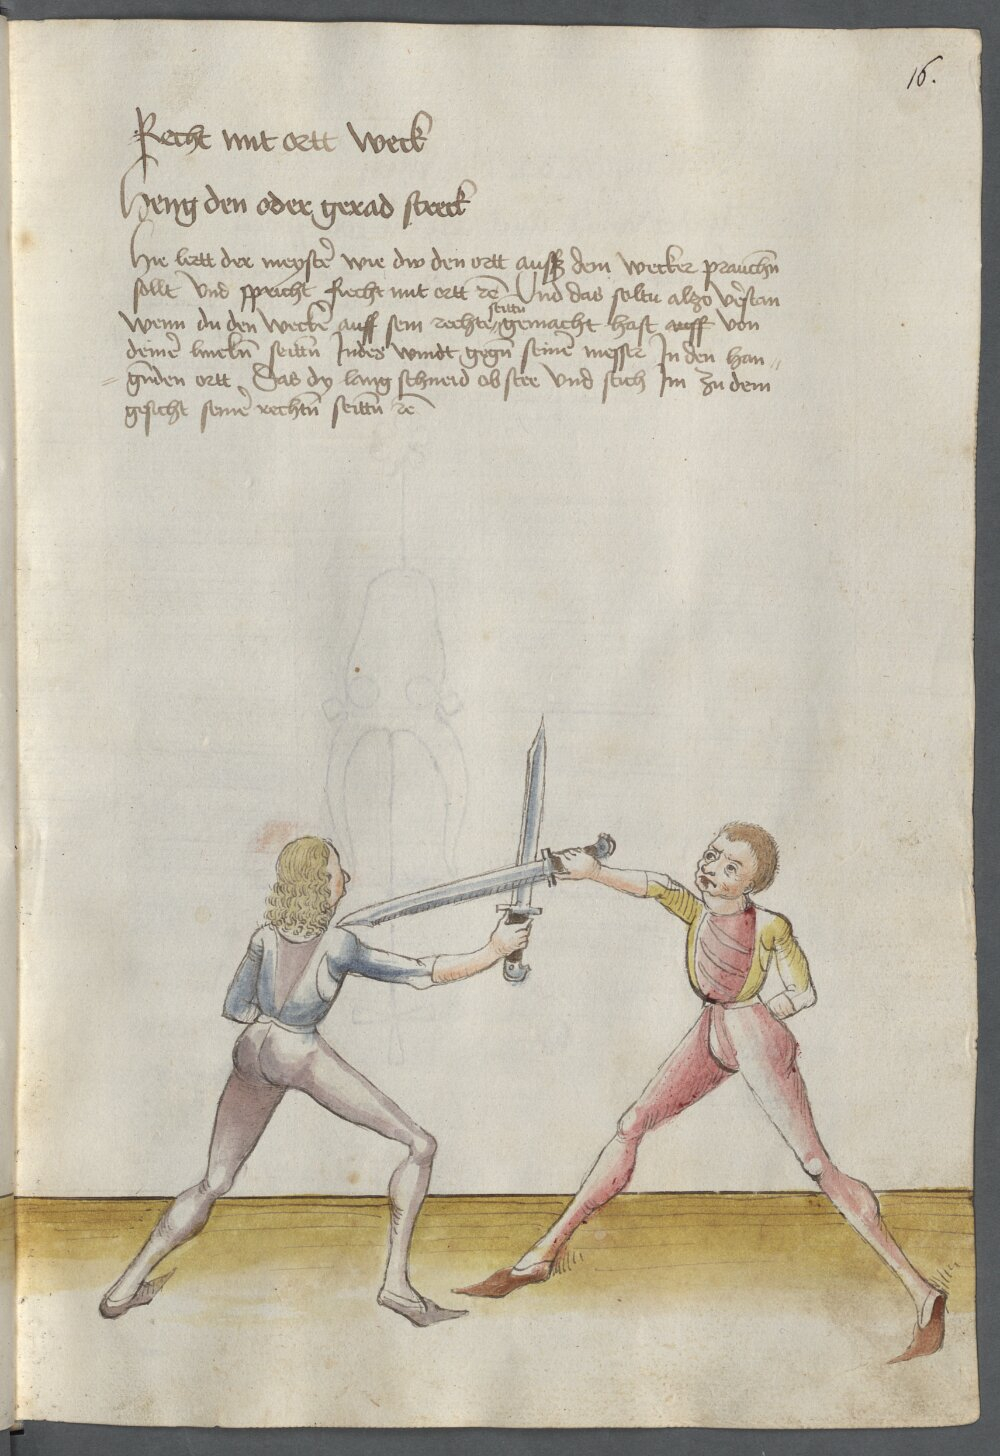 16.
Recht mit ortt weck
Heng den oder gerad streck
Hie lertt der meyster wie dw den ortt auß dem wecker prauchn
sollt Und spricht Recht mit ortt rc Und das soltu alzo verstan
seittn
Wenn du den wecker auff sein rechte gemacht hast auff von
deiner linckn seittn Indes windt gegn seinem messer In den han=
=gnden ortt Das dy lang schneid ob stee und stich Im zu dem
gesicht seiner rechtn seittn rc